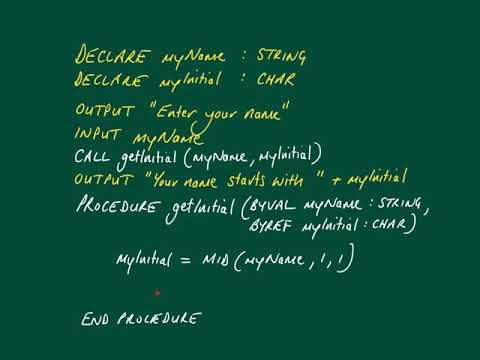 DECLARE myName : STRING
DECLARE myInitial : CHAR
OUTPUT "Enter your name"
INPUT myName
CALL getInitial (myName, myInitial)
OUTPUT "Your name starts with " + myInitial
PROCEDURE getInitial (BYVAL myName : STRING,
BYREF myInitial : CHAR)
myInitial = MID (myName, 1, 1)
END PROCEDURE